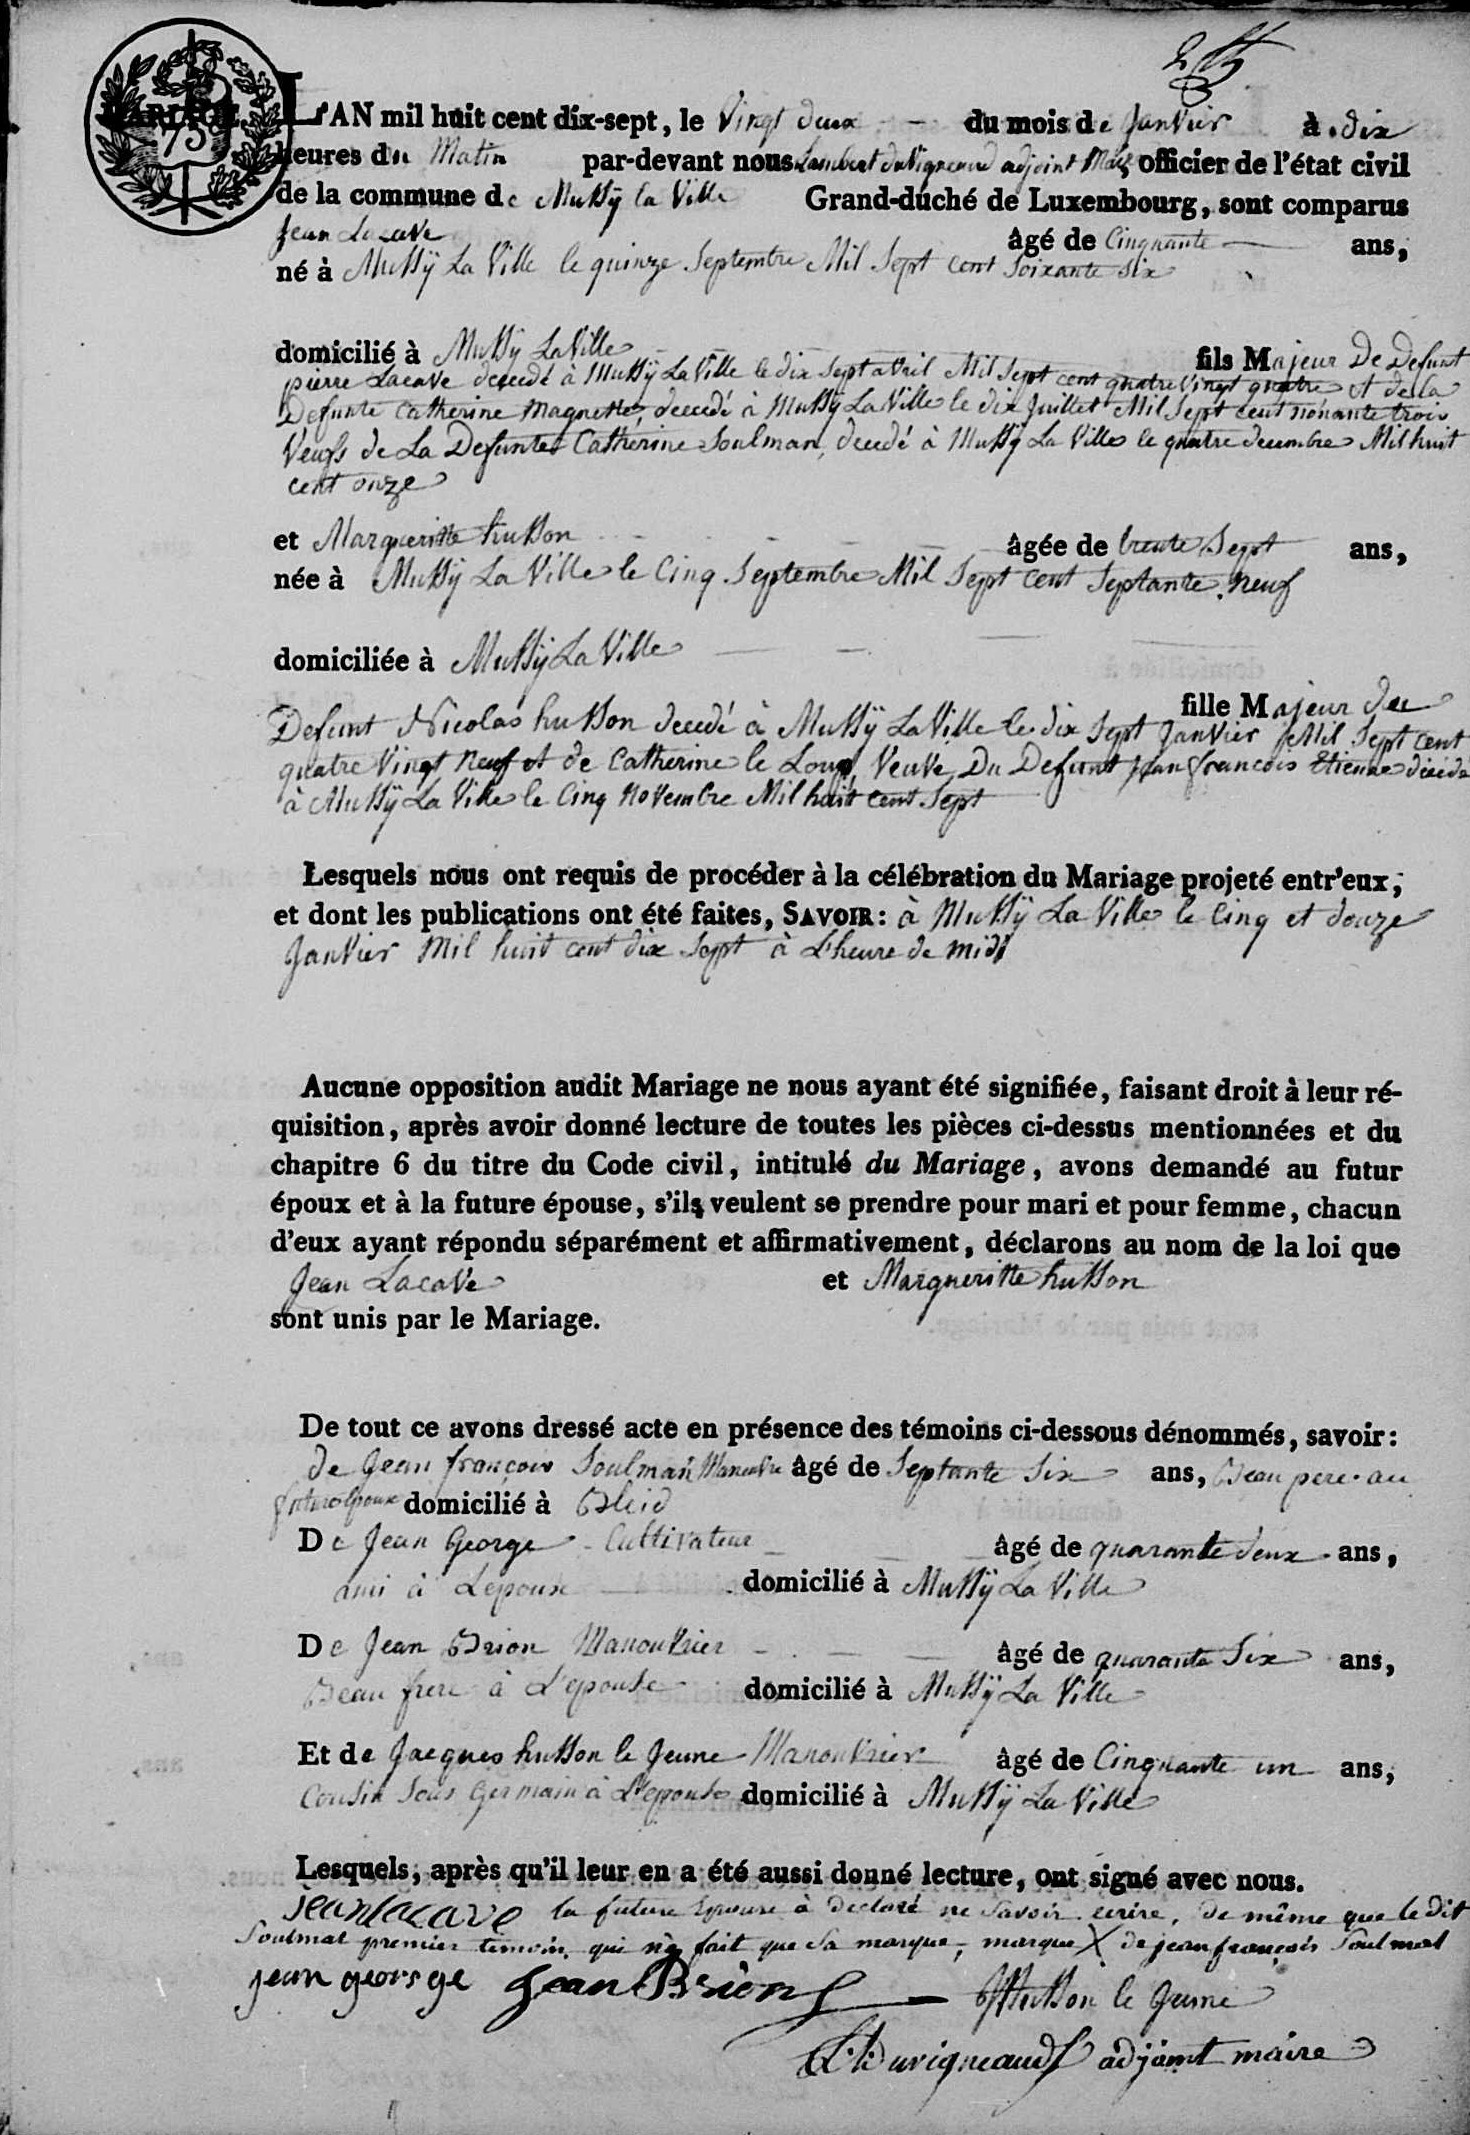 MARIAGE. L'AN mil huit cent dix-sept, le Vingt deux du mois de Janvier à dix
heures du Matin par-devant nous Lambert duVigneaud adjoint Maire officier de l'état civil
de la commune de Mussÿ la Ville Grand-duché de Luxembourg, sont comparus
Jean Lacave âgé de Cinquante ans,
né à Mussÿ La Ville le quinze Septembre Mil Sept cent Soixante Six
domicilié à Mussÿ LaVille fils Majeur De Defunt
pierre Lacave decedé à Mussÿ LaVille le dix Sept avril Mil Sept cent quatre Vingt quatre et de la
Defunte Catherine Magnette, decedé à Mussÿ LaVille le dix Juillet Mil Sept cent nonante trois
Veufs de La Defunte Catherine Soulman, decedé à Mussÿ La Ville le quatre decembre Mil huit
cent onze
et Margueritte husson âgée de trente Sept ans,
née à Mussÿ La Ville le Cinq Septembre Mil Sept cent Septante neuf
domiciliée à Mussÿ La Ville
fille Majeur du
Defunt Nicolas husson decedé à Mussÿ LaVille le dix Sept Janvier Mil Sept cent
quatre Vingt Neuf et de Catherine le Loup, Veuve Du Defunt Jean francois Etienne décédé
à Mussÿ La Ville le Cinq Novembre Mil huit cent Sept
Lesquels nous ont requis de procéder à la célébration du Mariage projeté entr'eux,
et dont les publications ont été faites, SAVOIR: à Mussÿ La Ville le Cinq et douze
Janvier Mil huit cent dix Sept à L'heure de midi
Aucune opposition audit Mariage ne nous ayant été signifiée, faisant droit à leur ré-
quisition, après avoir donné lecture de toutes les pièces ci-dessus mentionnées et du
chapitre 6 du titre du Code civil, intitulé du Mariage, avons demandé au futur
époux et à la future épouse, s'ils veulent se prendre pour mari et pour femme, chacun
d'eux ayant répondu séparément et affirmativement, déclarons au nom de la loi que
Jean Lacave et Margueritte husson
sont unis par le Mariage.
De tout ce avons dressé acte en présence des témoins ci-dessous dénommés, savoir:
de Jean françois Soulman âgé de Septante Six ans, Beau pere au
futur Epoux domicilié à Bleid
De Jean George Cultivateur âgé de quarante deux ans,
ami à Lepoux domicilié à Mussÿ La Ville
De Jean Brion Manouvrier âgé de quarante Six ans,
Beau frere à L'epouse domicilié à Mussÿ La Ville
Et de Jacques husson le Jeune Manouvrier âgé de Cinquante un ans,
Cousin Sous Germain à L'epouse domicilié à Mussÿ La Ville
Lesquels, après qu'il leur en a été aussi donné lecture, ont signé avec nous.
Jean lacave la future Epouse à declaré ne Savoir ecrire, de même que le dit
Soulmal premier temoin, qui n'a fait que Sa marque, marque X de jean françois Soulmal
jean george Jean Brion JHusson le Jeune
L. Duvigneaud adjoint maire